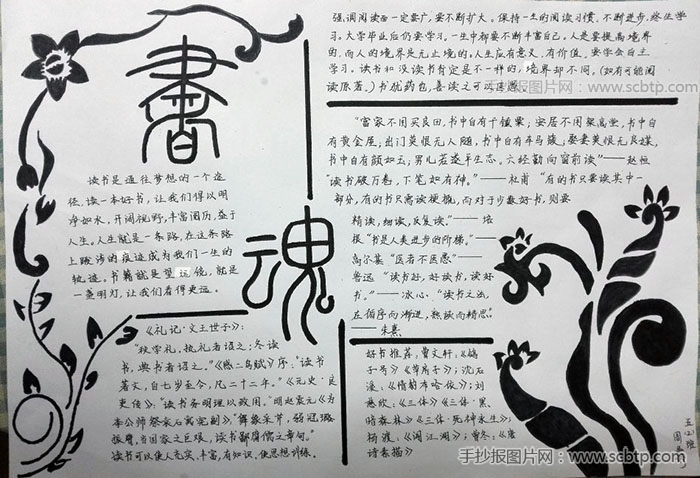 書
魂
读书是通往梦想的一个途
径,读一本好书,让我们得以明
净如水,开阔视野,丰富阅历,益于
人生。人生就是一条路,在这条路
上跋涉的痕迹成为我们一生的
轨迹。书籍就是望远镜,就是
一盏明灯,让我们看得更远。
《礼记·文王世子》:
"秋学礼,执礼者诏之;冬读
书,典书者诏之。"《感二鸟赋》序:"读书
著文,自七岁至今,凡二十二年。"《元史·良
吏传》:"读书务明理以致用。"
当国家之巨艰,读书鄙腐儒之章句。"
读书可以使人充实,丰富,有知识,使思想训练。
强调阅读面一定要广,要不断扩大。保持一生的阅读习惯,不断进步,终生学
习。大学毕业后仍要学习。一生中都要不断丰富自己。人是要提高境界
的,而人的境界是无止境的。人生应有意义,有价值。要学会自主
学习。读书和没读书肯定是不一样的,境界却不同。(如有可能阅
读原著。)书犹药也,善读之可以医愚
"富家不用买良田,书中自有千锺粟;安居不用架高堂,书中自
有黄金屋;出门莫恨无人随,书中自有车马簇;娶妻莫恨无良媒,
书中自有颜如玉;男儿若遂平生志,六经勤向窗前读"——赵恒
"读书破万卷,下笔如有神。"——杜甫 "有的书只要读其中一
部分,有的书只需读梗概,而对于少数好书,则要
精读,细读,反复读。"——培
根"书是人类进步的阶梯。"——
高尔基
鲁迅 "读书好,好读书,读好
书。"——冰心。"读书之法,
在循序而渐进,熟读而精思"
——朱熹
好书推荐:曹文轩:《鸽
子号》《草房子》;沈石
溪:《情豹布哈依》;刘
慈欣:《三体》《三体·黑
暗森林》《三体·死神永生》;
杨渡:《闯江湖》;曾冬:《唐
诗素描》
五(2)班
手抄报图片网:www.scbtp.com
手抄报图片网:www.scbtp.com